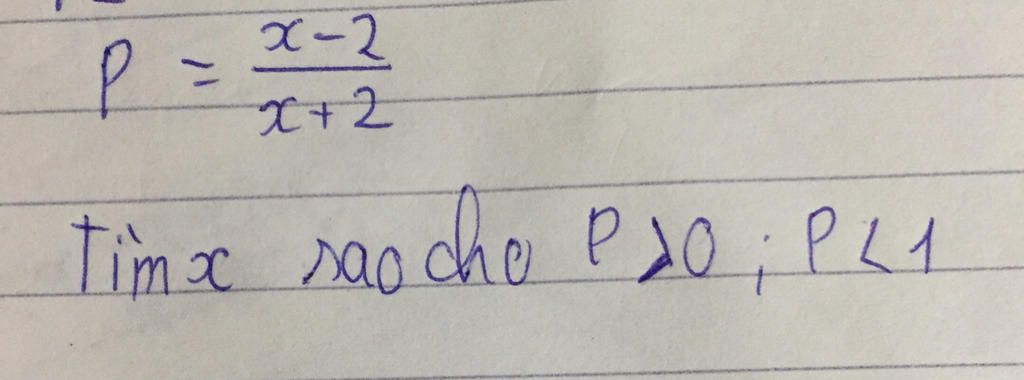 P = \frac{x-2}{x+2}
Tìm x sao cho P > 0 ; P < 1